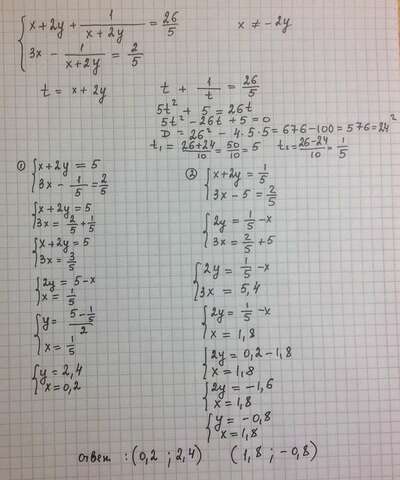 x+2y + 1/(x+2y) = 26/5     x ≠ -2y
3x - 1/(x+2y) = 2/5
t = x+2y     t + 1/t = 26/5
5t² + 5 = 26t
5t² - 26t + 5 = 0
D = 26² - 4·5·5 = 676-100 = 576 = 24²
t₁ = (26+24)/10 = 50/10 = 5     t₂ = (26-24)/10 = 1/5
①
x+2y = 5
3x - 1/5 = 2/5
x+2y = 5
3x = 2/5 + 1/5
x+2y = 5
3x = 3/5
2y = 5-x
x = 1/5
y = (5 - 1/5)/2
x = 1/5
y = 2,4
x = 0,2
②
x+2y = 1/5
3x - 5 = 2/5
2y = 1/5 - x
3x = 2/5 + 5
2y = 1/5 - x
3x = 5,4
2y = 1/5 - x
x = 1,8
2y = 0,2-1,8
x = 1,8
2y = -1,6
x = 1,8
y = -0,8
x = 1,8
ответ : (0,2 ; 2,4)     (1,8 ; -0,8)